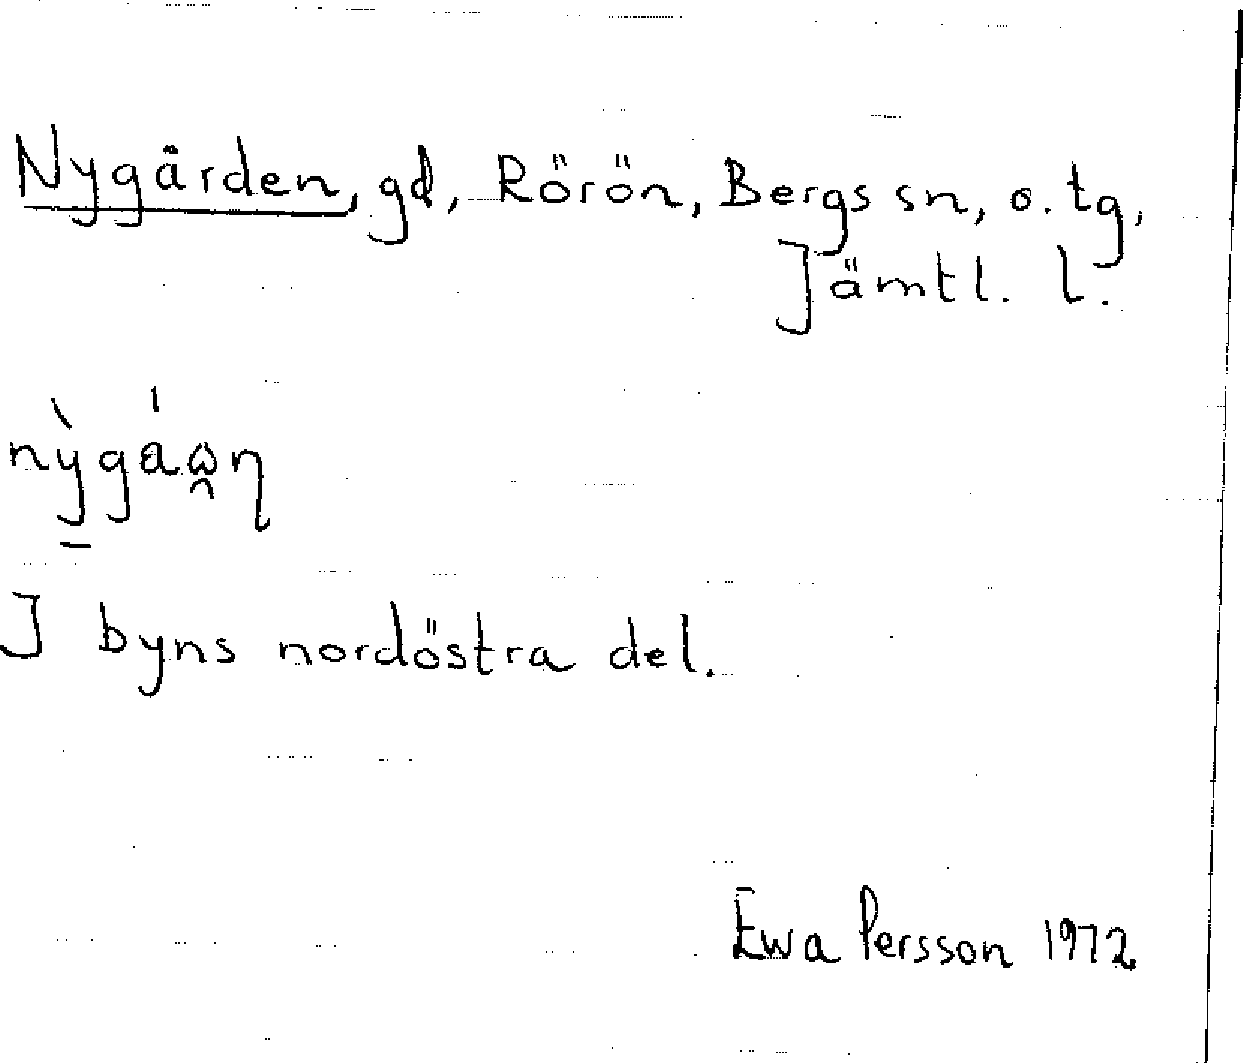 Nygården, gd, Rörön, Bergs sn, o. tg,
Jämtl. l.
I byns nordöstra del.
Ewa Persson 1972